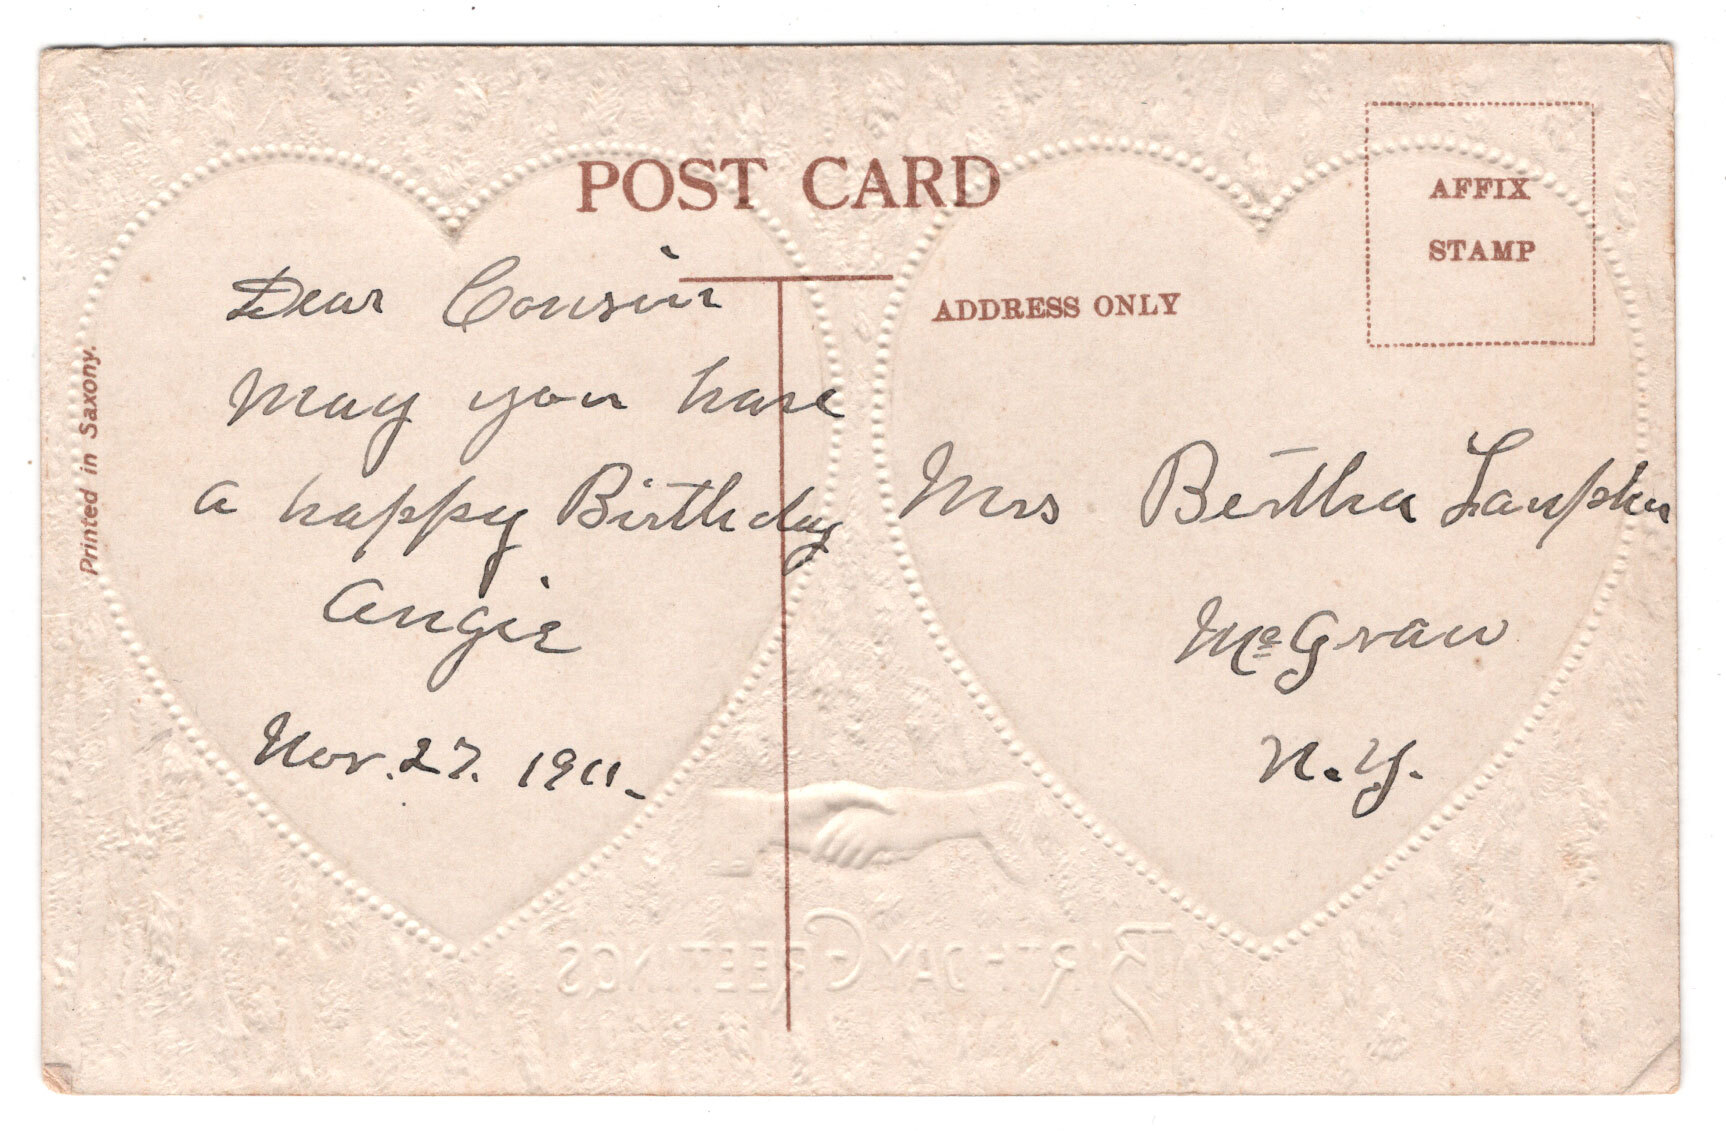 POST CARD
AFFIX
STAMP
ADDRESS ONLY
Printed in Saxony.
Dear Cousin
May you have
a happy Birthday
Angie
Nov. 27. 1911.
Mrs Bertha
McGraw
N.Y.
BIRTHDAY GREETINGS